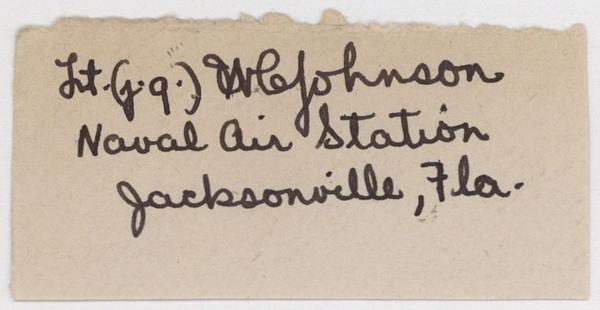 Lt. (j.g.) W C Johnson
Naval Air Station
Jacksonville, Fla.